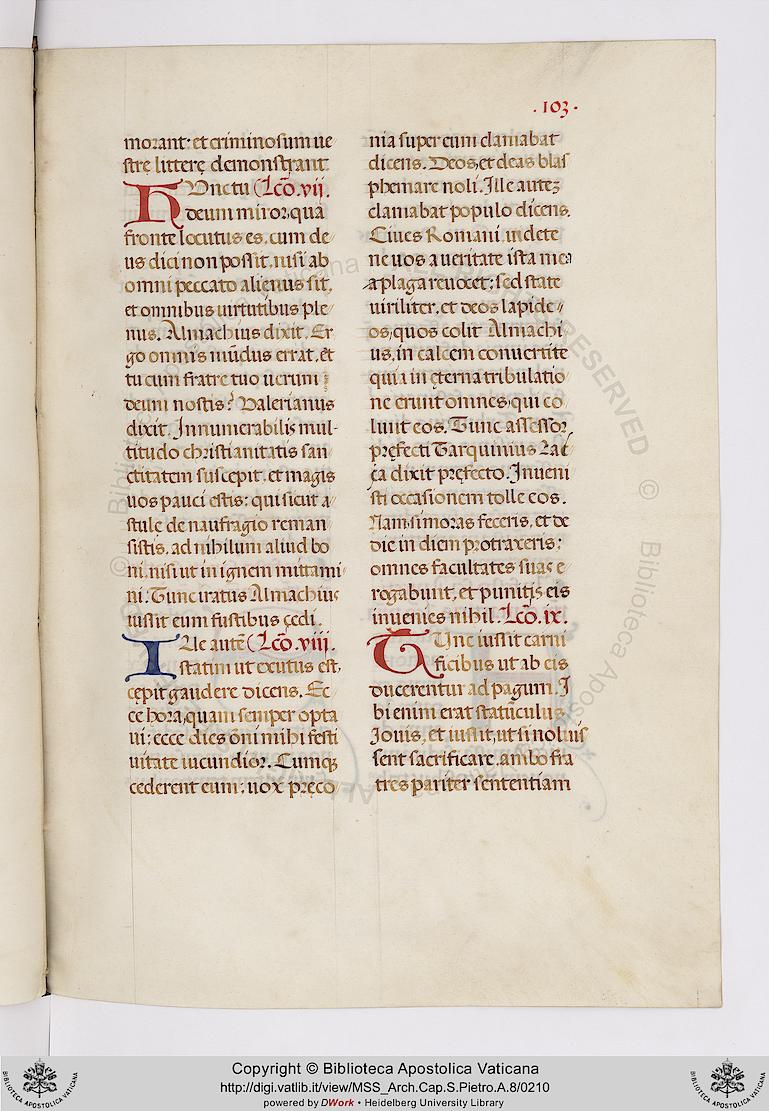 ·103·
morant: et criminosum ue
strę litterę demonstrant
HUnc tu (Lcō.vii.
deum miror, qua
fronte locutus es, cum de
us dici non possit, nisi ab
omni peccato alienus sit,
et omnibus uirtutibus ple
nus. Almachius dixit. Er
go omnis mūdus errat, et
tu cum fratre tuo uerum
deum nostis? Valerianus
dixit. Innumerabilis mul-
titudo christianitatis san
ctitatem suscepit, et magis
uos pauci estis: qui sicut a
stulę de naufragio reman
sistis, ad nihilum aliud bo
ni, nisi ut in ignem mittami
ni: Tunc iratus Almachius
iussit eum fustibus cędi.
ILle autē (Lcō.viii.
statim ut exutus est,
cępit gaudere dicens. Ec
ce hora, quam semper opta
ui: ecce dies ōni mihi festi
uitate iucundior. Cumqꝫ
cederent eum: uox pręco
nia super eum clamabat
dicens. Deos, et deas blas
phemare noli. Ille auteꝫ
clamabat populo dicens.
Ciues Romani, in dete
ne uos a ueritate ista mea
a plaga reuocet: sed state
uiriliter, et deos lapide
os, quos colit Almachi
us, in calcem conuertite
quia in ęterna tribulatio
ne erunt omnes, qui co
lunt eos. Tunc assessor
pręfecti Tarquinius Lac
ça dixit pręfecto. Inueni
sti occasionem tolle eos.
Nam si moras feceris, et de
die in diem protraxeris:
omnes facultates suas e
rogabunt, et punitis eis
inuenies nihil. Lcō.ix.
TUnc iussit carni
ficibus ut ab eis
ducerentur ad pagum. I
bi enim erat statūculuꝫ
Iouis, et iussit, ut si noluis
sent sacrificare, ambo fra
tres pariter sententiam
Copyright © Biblioteca Apostolica Vaticana
http://digi.vatlib.it/view/MSS_Arch.Cap.S.Pietro.A.8/0210
powered by DWork • Heidelberg University Library
BIBLIOTECA APOSTOLICA VATICANA
BIBLIOTECA APOSTOLICA VATICANA